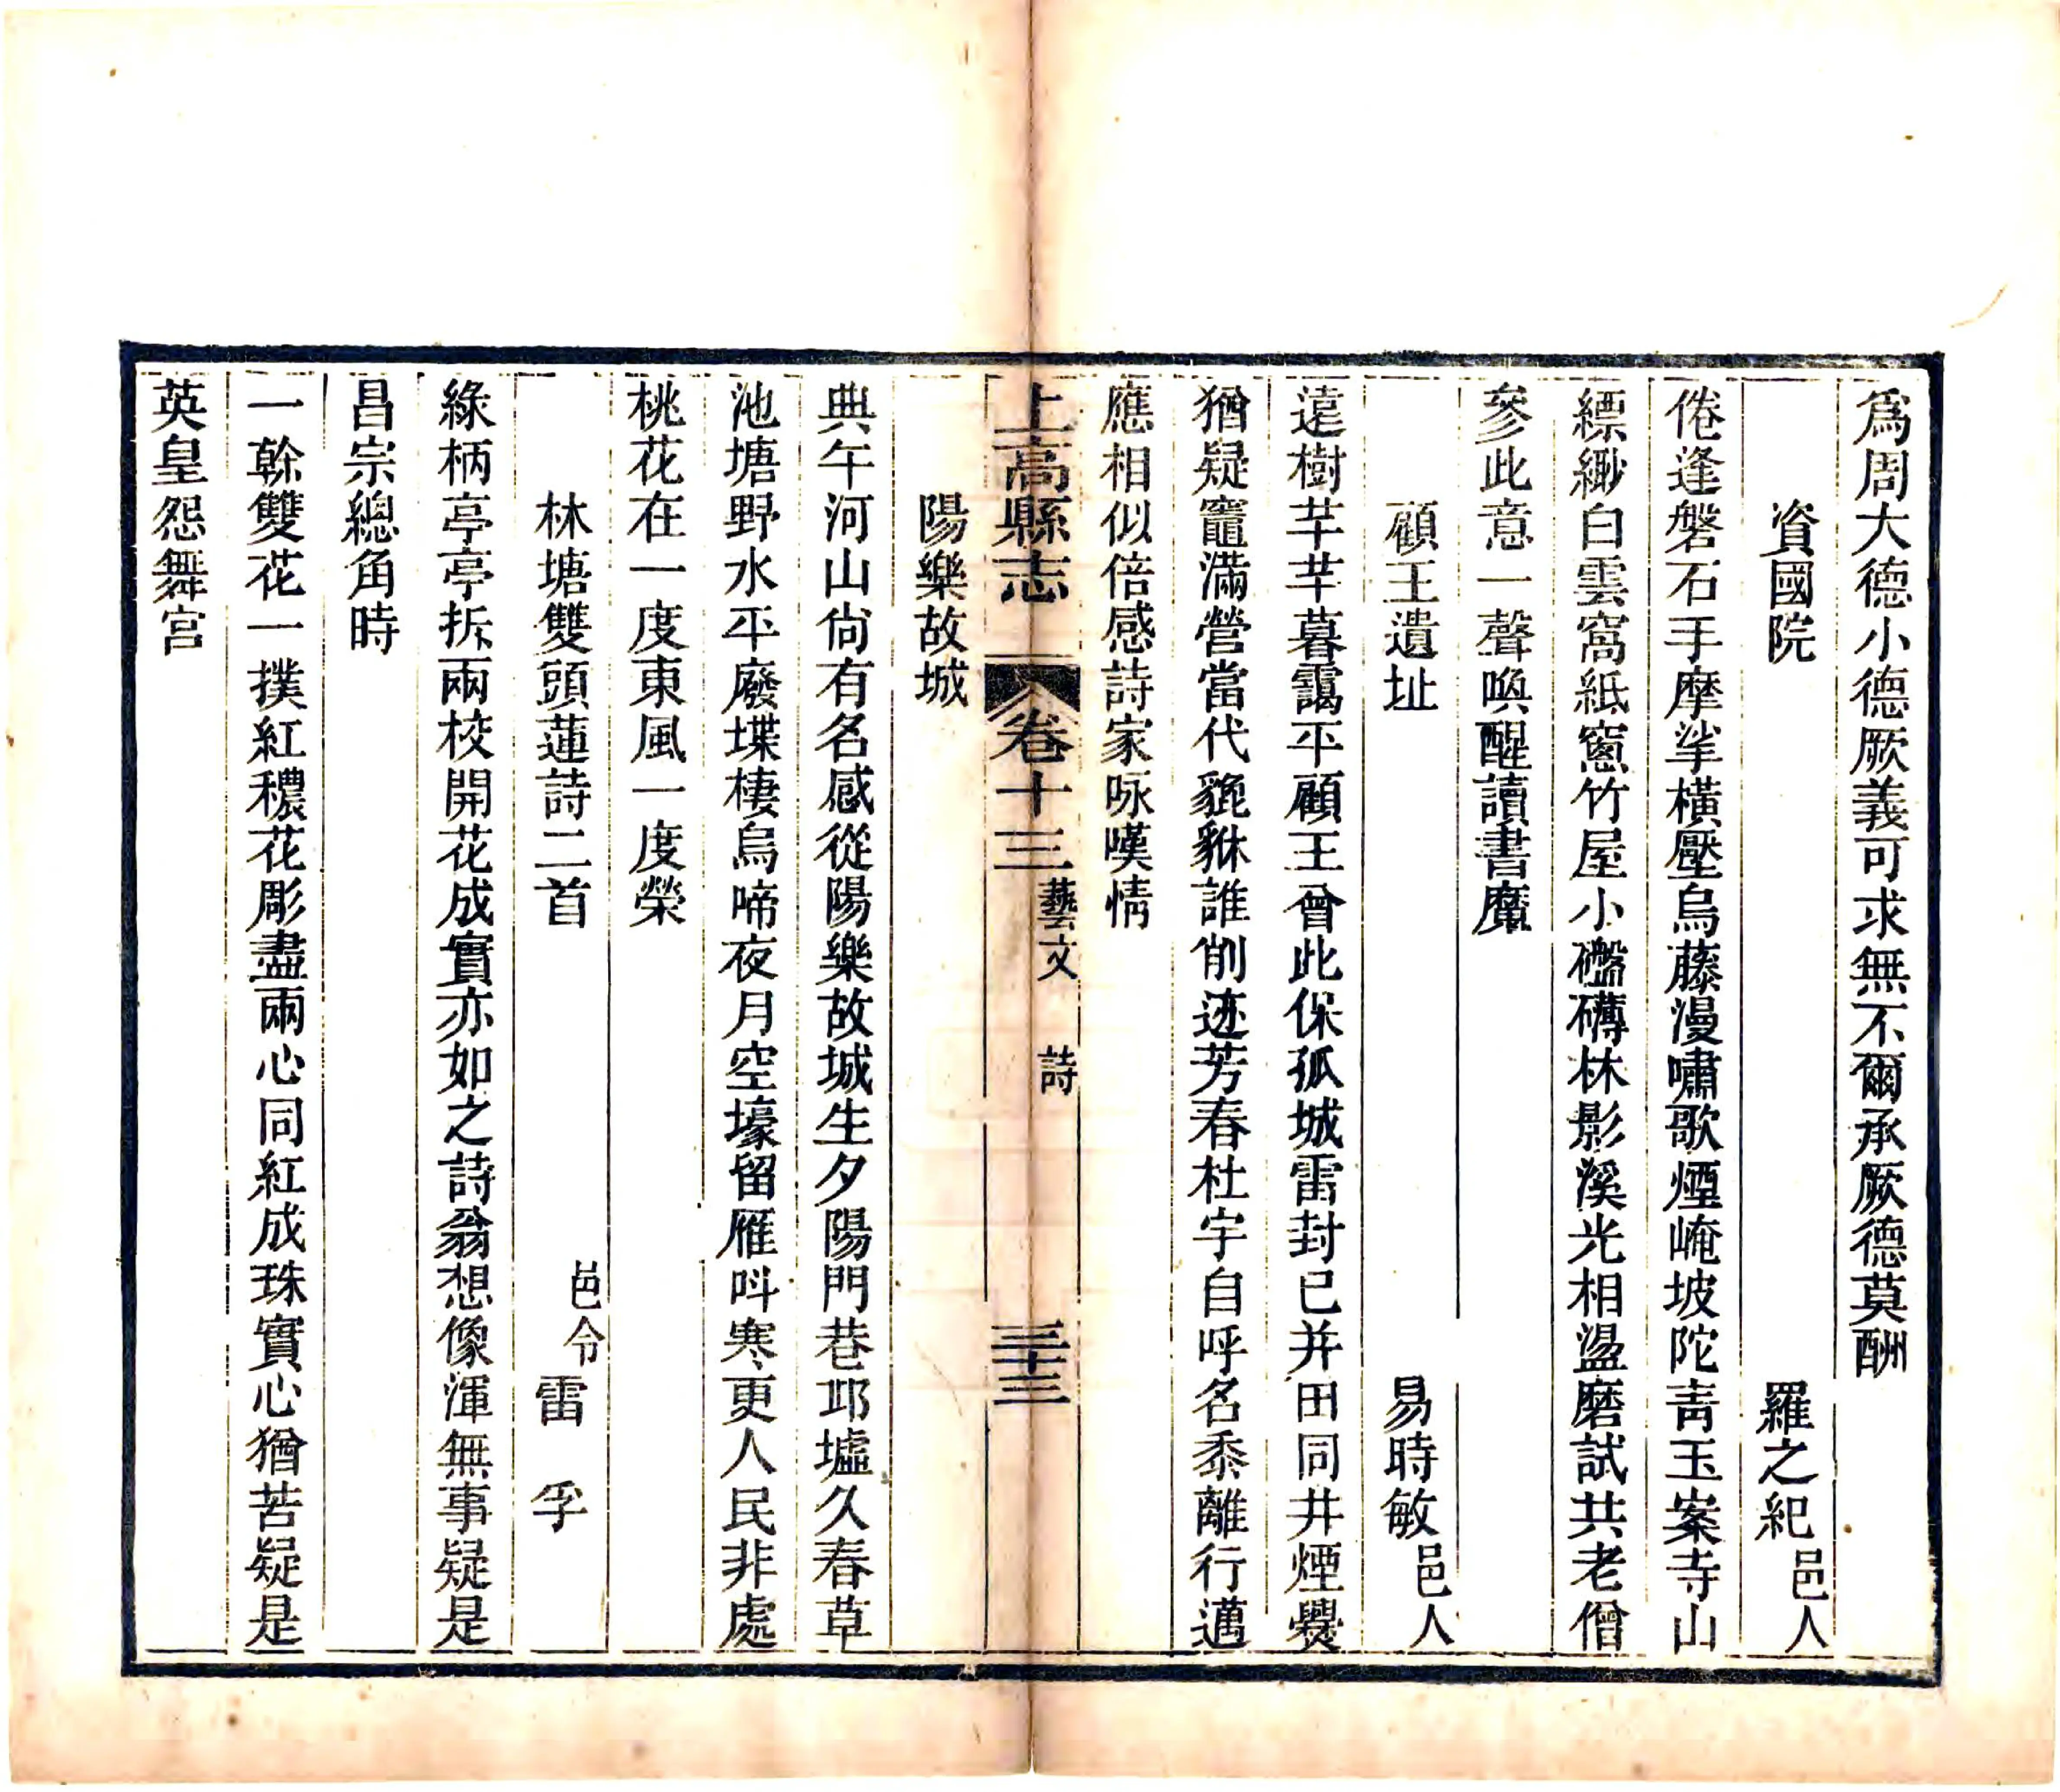 爲周大德小德厥義可求無不爾承厥德莫酬
資國院　羅之紀邑人
倦逢磐石手摩挲橫壓烏藤漫嘯歌煙崦坡陀靑玉案寺山
縹緲白雲窩紙窻竹屋小礲磚林影溪光相盪磨試共老僧
參此意一聲喚醒讀書魔
顧王遺址　易時敏邑人
遠樹芊芊暮靄平顧王曾此保孤城雷封已并田同井煙爨
猶疑竈滿營當代貔貅誰削迹芳春杜宇自呼名黍離行邁
應相似倍感詩家咏嘆情
上高縣志　卷十三　藝文　詩　三十三
陽樂故城
典午河山尙有名感從陽樂故城生夕陽門巷邛墟久春草
池塘野水平廢堞棲烏啼夜月空壕留雁呌寒更人民非處
桃花在一度東風一度榮
林塘雙頭蓮詩二首　邑令雷孚
綠柄亭亭拆兩校開花成實亦如之詩翁想像渾無事疑是
昌宗總角時
一榦雙花一撲紅穠花彫盡兩心同紅成珠實心猶苦疑是
英皇怨舞宮